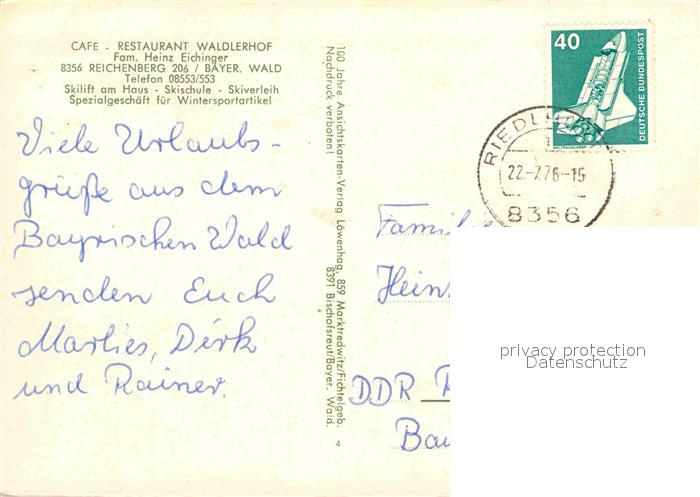 CAFE - RESTAURANT WALDLERHOF
Fam. Heinz Eichinger
8356 REICHENBERG 206 / BAYER. WALD
Telefon 08553/553
Skilift am Haus - Skischule - Skiverleih
Spezialgeschäft für Wintersportartikel
Viele Urlaubs-
grüße aus dem
Bayrischen Wald
senden Euch
Marlies, Dirk
und Rainer.
100 Jahre Ansichtskarten-Verlag Löwenhag, 859 Marktredwitz/Fichtelgeb.
Nachdruck verboten! 8391 Bischofsreut/Bayer. Wald.
4
40
DEUTSCHE BUNDESPOST
22.-7.76-15
8356
Familie
Hein
DDR
Bau
privacy protection
Datenschutz